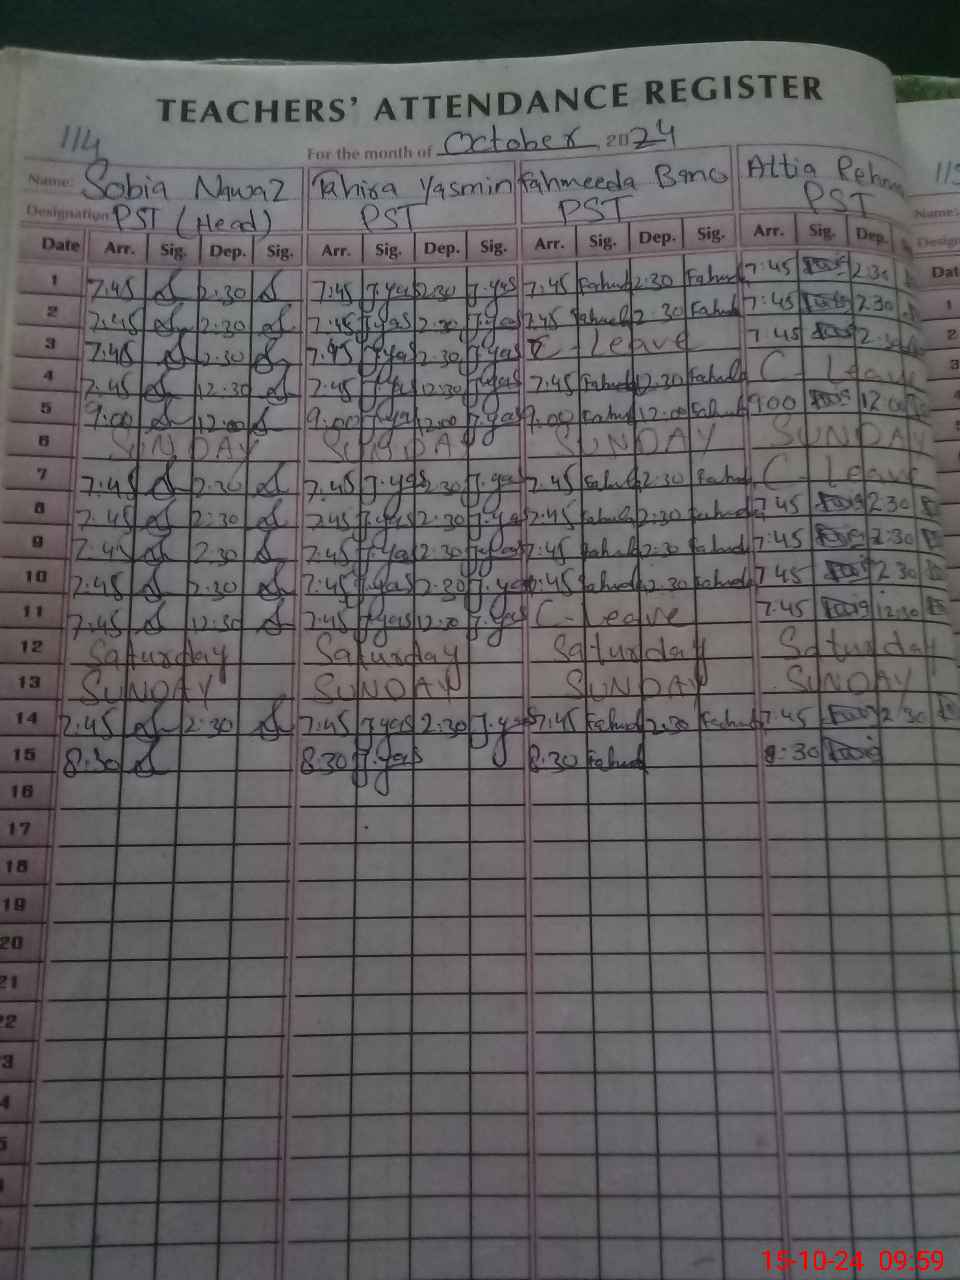 TEACHERS' ATTENDANCE REGISTER
114
For the month of October 2024
Name: Sobia Nawaz Tahira Yasmin Fahmeeda Bano Attia Rehma
Designation PST (Head) PST PST PST
Name:
Date Arr. Sig. Dep. Sig. Arr. Sig. Dep. Sig. Arr. Sig. Dep. Sig. Arr. Sig. Dep.
1 7:45 2:30 7:45 T.yas 2:30 T.yas 7:45 Fahmd 2:30 Fahmd 7:45 2:30
2 7:45 2:30 7:45 T.yas 2:30 T.yas 7:45 Fahmd 2:30 Fahmd 7:45 2:30
3 7:45 2:30 7:45 T.yas 2:30 T.yas C- Leave 7:45 2:30
4 7:45 12:30 7:45 T.yas 12:30 T.yas 7:45 Fahmd 12:30 Fahmd C- Leave
5 9:00 12:00 9:00 T.yas 12:00 T.yas 9:00 Fahmd 12:00 Fahmd 9:00 12:00
6 SUNDAY SUNDAY SUNDAY SUNDAY
7 7:45 2:30 7:45 T.yas 2:30 T.yas 7:45 Fahmd 2:30 Fahmd C- Leave
8 7:45 2:30 7:45 T.yas 2:30 T.yas 7:45 Fahmd 2:30 Fahmd 7:45 2:30
9 7:45 2:30 7:45 T.yas 2:30 T.yas 7:45 Fahmd 2:30 Fahmd 7:45 2:30
10 7:45 2:30 7:45 T.yas 2:30 T.yas 7:45 Fahmd 2:30 Fahmd 7:45 2:30
11 7:45 12:30 7:45 T.yas 12:30 T.yas C- Leave 7:45 12:30
12 Saturday Saturday Saturday Saturday
13 SUNDAY SUNDAY SUNDAY SUNDAY
14 7:45 2:30 7:45 T.yas 2:30 T.yas 7:45 Fahmd 2:30 Fahmd 7:45 2:30
15 8:30 8:30 T.yas 8:30 Fahmd 8:30
16
17
18
19
20
21
22
3
4
5
15-10-24 09:59